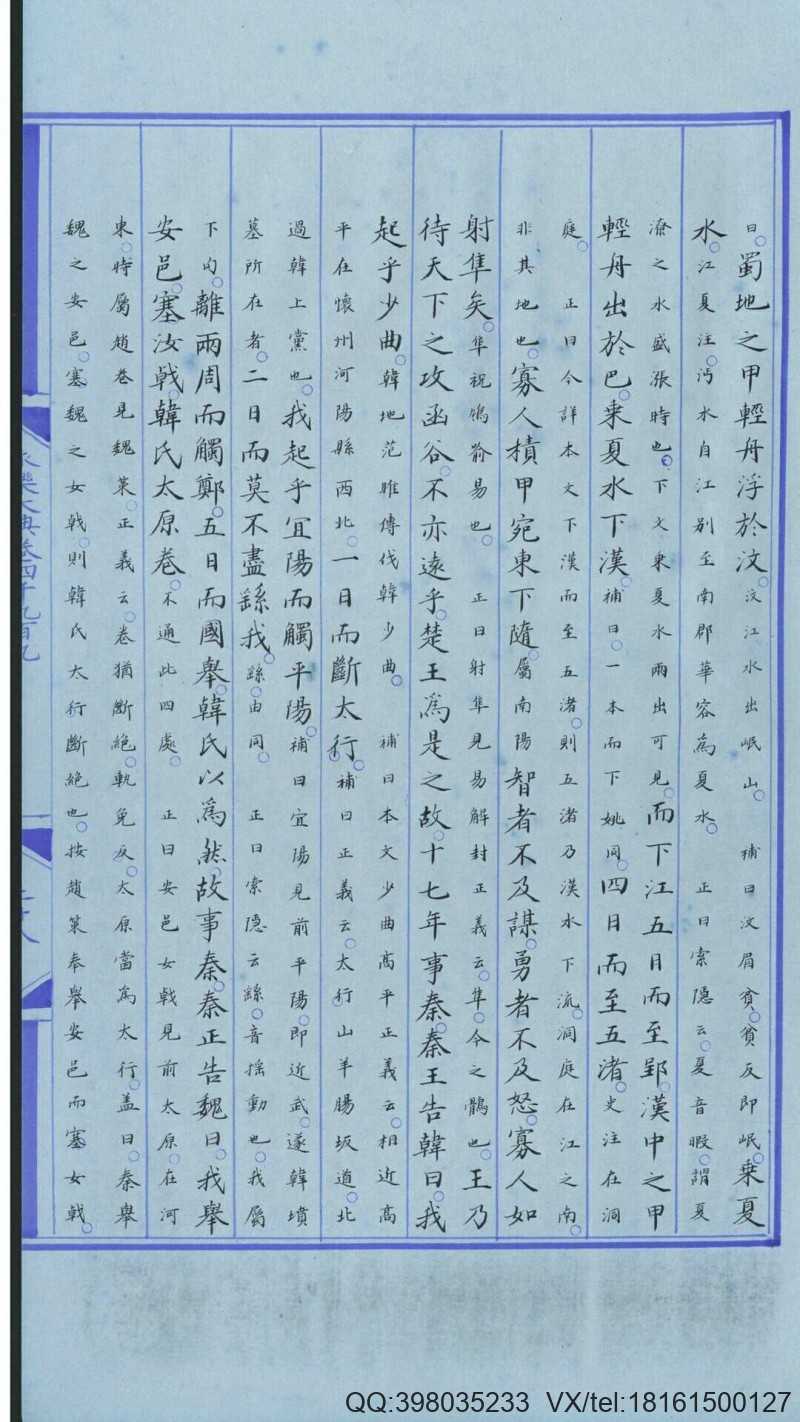 曰。蜀地之甲輕舟浮於汶。汶江水出岷山。 補曰汶眉貧。貧反即岷。乘夏
水。江夏注。沔水自江別至南郡華容為夏水。 正曰索隱云。夏音暇。謂夏
潦之水盛漲時也。下文乘夏水兩出可見。而下江五日而至郢。漢中之甲
輕舟出於巴。乘夏水下漢。補曰。一本而下姚同。四日而至五渚。史注在洞
庭。 正曰今詳本文下漢而至五渚。則五渚乃漢水下流。洞庭在江之南。
非其地也。寡人積甲宛東下隨。屬南陽智者不及謀。勇者不及怒。寡人如
射隼矣。隼祝鳩喻易也。 正曰射隼見易解封正義云。隼。今之鶻也。王乃
待天下之攻函谷。不亦遠乎。楚王為是之故。十七年事秦。秦王告韓曰。我
起乎少曲。韓地范雎傳伐韓少曲。 補曰本文少曲高平正義云。相近高
平在懷州河陽縣西北。一日而斷太行。補曰正義云。太行山羊腸坂道。北
過韓上黨也。我起乎宜陽而觸平陽。補曰宜陽見前平陽。即近武。遂韓墳
墓所在者。二日而莫不盡繇我。繇。由同。 正曰索隱云繇。音搖動也。我屬
下句。離兩周而觸鄭。五日而國舉。韓氏以為然。故事秦。秦正告魏曰。我舉
安邑。塞汝戟。韓氏太原卷。不通此四處。 正曰安邑女戟見前太原。在河
東。時屬趙卷見魏策。正義云。卷猶斷絕。軌免反。太原當為太行。蓋曰。秦舉
魏之安邑。塞魏之女戟。則韓氏太行斷絕也。按趙策秦舉安邑而塞女戟。
永樂大典卷四千九百九
QQ:398035233 VX/tel:18161500127